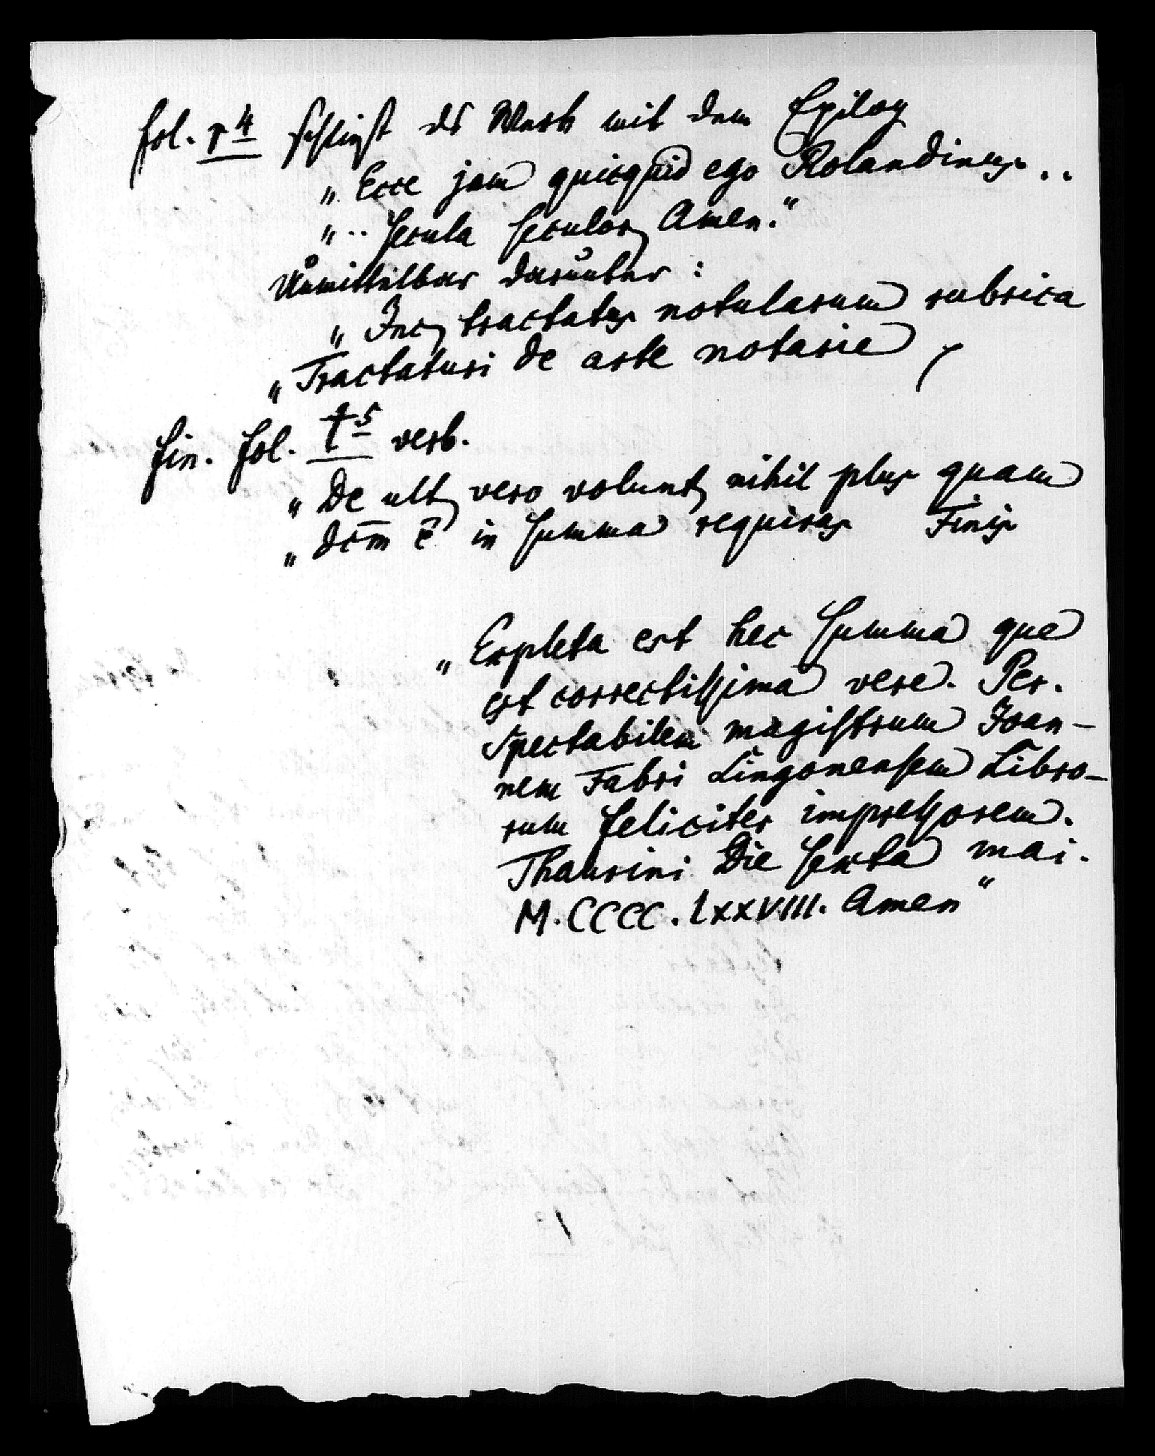 fol. r⁴ schließt ds Werk mit dem Epilog
„Ecce jam quicquid ego Rolandinus...
„.. secula seculoꝝ Amen."
Unmittelbar darunter :
„Incꝫ tractatus notularum rubrica
„Tractaturi de arte notarie
fin. fol. t⁵ verb.
„De ultꝫ vero voluntꝫ nihil plus quam
„dc̄m ē in summa requiras Finis
„Expleta est hec summa que
est correctissima vere. Per.
Spectabilem magistrum Joan-
nem Fabri Lingonensem Libro-
rum feliciter impressorem.
Thaurini Die sexta mai.
M.CCCC.LXXVIII. Amen"